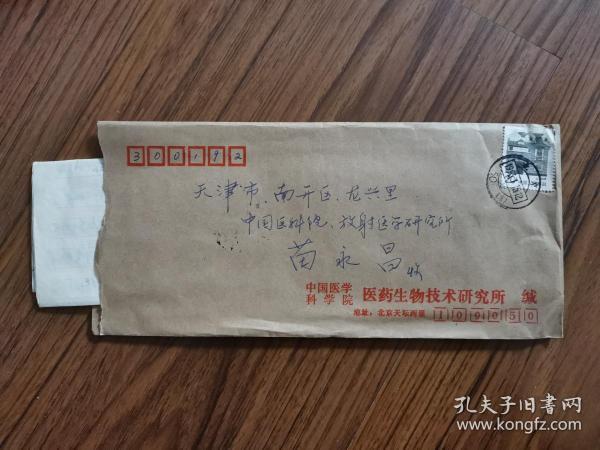 300192
天津市、南开区、龙兴里
中国医科院、放射医学研究所
苗永昌 收
中国医学
科学院 医药生物技术研究所 缄
地址：北京天坛西里 100050
孔夫子旧书网
kongfz.com